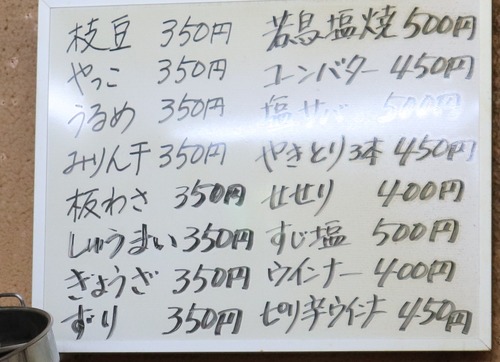 枝豆 350円
やっこ 350円
うるめ 350円
みりん干 350円
板わさ 350円
しゅうまい 350円
ぎょうざ 350円
ずり 350円
若鳥塩焼 500円
コーンバター 450円
塩サバ 500円
やきとり3本 450円
せせり 400円
すじ塩 500円
ウインナー 400円
ピリ辛ウインナ 450円